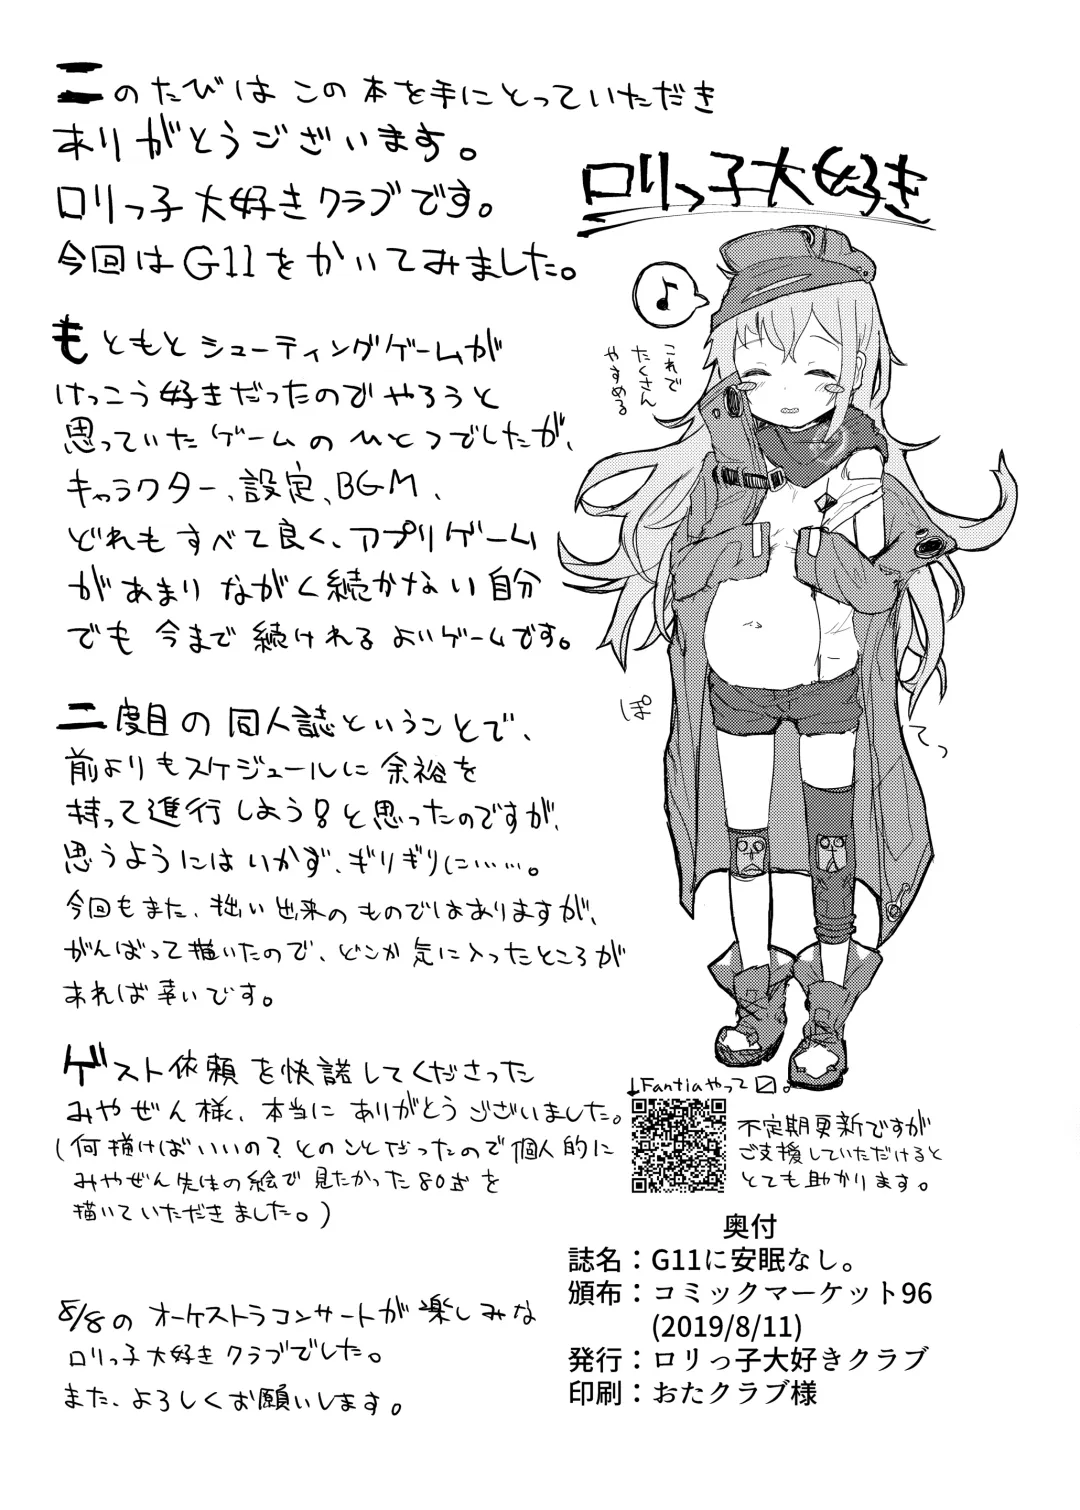 このたびは この本を手にとっていただき
ありがとうございます。
ロリっ子大好きクラブです。
今回はG11をかいてみました。
もともとシューティングゲームが
けっこう好きだったのでやろうと
思っていたゲームのひとつでしたが、
キャラクター、設定、BGM、
どれもすべて良く、アプリゲーム
があまりながく続かない自分
でも今まで続けれるよいゲームです。
二度目の同人誌ということで、
前よりもスケジュールに余裕を
持って進行しよう!と思ったのですが、
思うようにはいかず、ギリギリに……。
今回もまた、拙い出来のものではありますが、
がんばって描いたので、どこか気に入ったところが
あれば幸いです。
ゲスト依頼を快諾してくださった
みやぜん様、本当にありがとうございました。
(何描けばいいの?とのことだったので個人的に
みやぜん先生の絵で見たかった80式を
描いていただきました。)
8/8のオーケストラコンサートが楽しみな
ロリっ子大好きクラブでした。
また、よろしくお願いします。
ロリっ子大好き
♪
これで
たくさん
やすめる
ぽ
てっ
↓Fantiaやって〼。
不定期更新ですが
ご支援していただけると
とても助かります。
奥付
誌名:G11に安眠なし。
頒布:コミックマーケット96
(2019/8/11)
発行:ロリっ子大好きクラブ
印刷:おたクラブ様